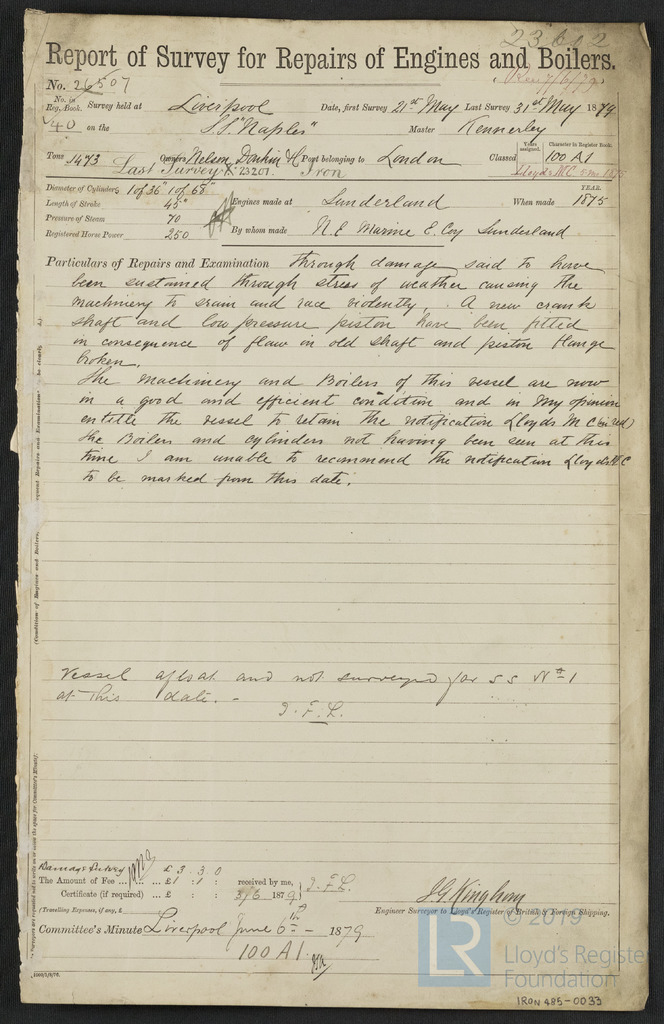 23612
Report of Survey for Repairs of Engines and Boilers.
No. 26507
No. in Reg. Book. Survey held at Liverpool Date, first Survey 21st May Last Survey 31st May 1879
40 on the S.S. "Naples" Master Kennerley
Tons 1473 Owners Nelson, Donkin & Co Port belonging to London Classed Years assigned. Character in Register Book. 100 A1
Last Survey No 23207. Iron Lloyds MC 5 mo 1875
Diameter of Cylinders 1 of 36" 1 of 68"
Length of Stroke 45" Engines made at Sunderland When made YEAR. 1875
Pressure of Steam 70
Registered Horse Power 250 By whom made N.E. Marine E. Coy Sunderland
Particulars of Repairs and Examination Through damage said to have
been sustained through stress of weather causing the
machinery to strain and race violently. A new crank
shaft and low pressure piston have been fitted
in consequence of flaw in old shaft and piston flange
broken.
The machinery and Boilers of this vessel are now
in a good and efficient condition and in my opinion
entitle the vessel to retain the notification Lloyds M C (in red)
The Boilers and cylinders not having been seen at this
time I am unable to recommend the notification Lloyds MC
to be marked from this date.
Vessel afloat and not surveyed for SS No 1
at this date. -
J. F. L.
Damage Survey £ 3.3.0
The Amount of Fee ... £1 : 1 : received by me, J. F. L.
Certificate (if required) ... £ : : 3/6 1879
(Travelling Expenses, if any, £
J G Kinghorn
Engineer Surveyor to Lloyd's Register of British & Foreign Shipping.
Committee's Minute Liverpool June 6th - 1879
100 A1
© 2019
LR
Lloyd's Register
Foundation
IRON 485-0033